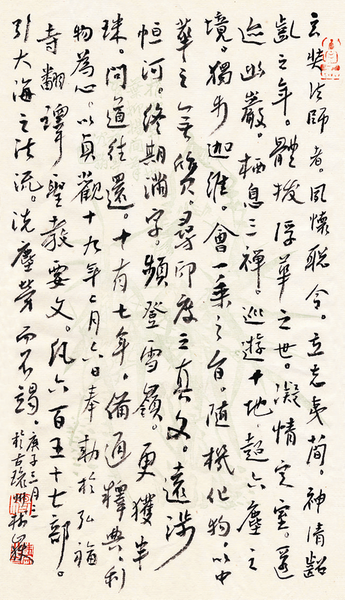 玄奘法師者。夙懷聰令。立志夷簡。神清齠
齔之年。體拔浮華之世。凝情定室。匿
迹幽巖。栖息三禪。巡遊十地。超六塵之
境。獨步迦維。會一乘之旨。隨機化物。以中
華之無質。尋印度之真文。遠涉
恒河。終期滿字。頻登雪嶺。更獲半
珠。問道往還。十有七年。備通釋典。利
物為心。以貞觀十九年二月六日奉勑於弘福
寺翻譯聖教要文。凡六百五十七部。
引大海之法流。洗塵勞而不竭。
庚子三月
於古